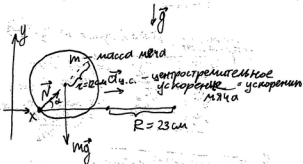 g
y
m – масса меча
N
r=12см
a ц.с.
центростремительное
ускорение = ускорению
мяча
α
x
R = 23 см
mg